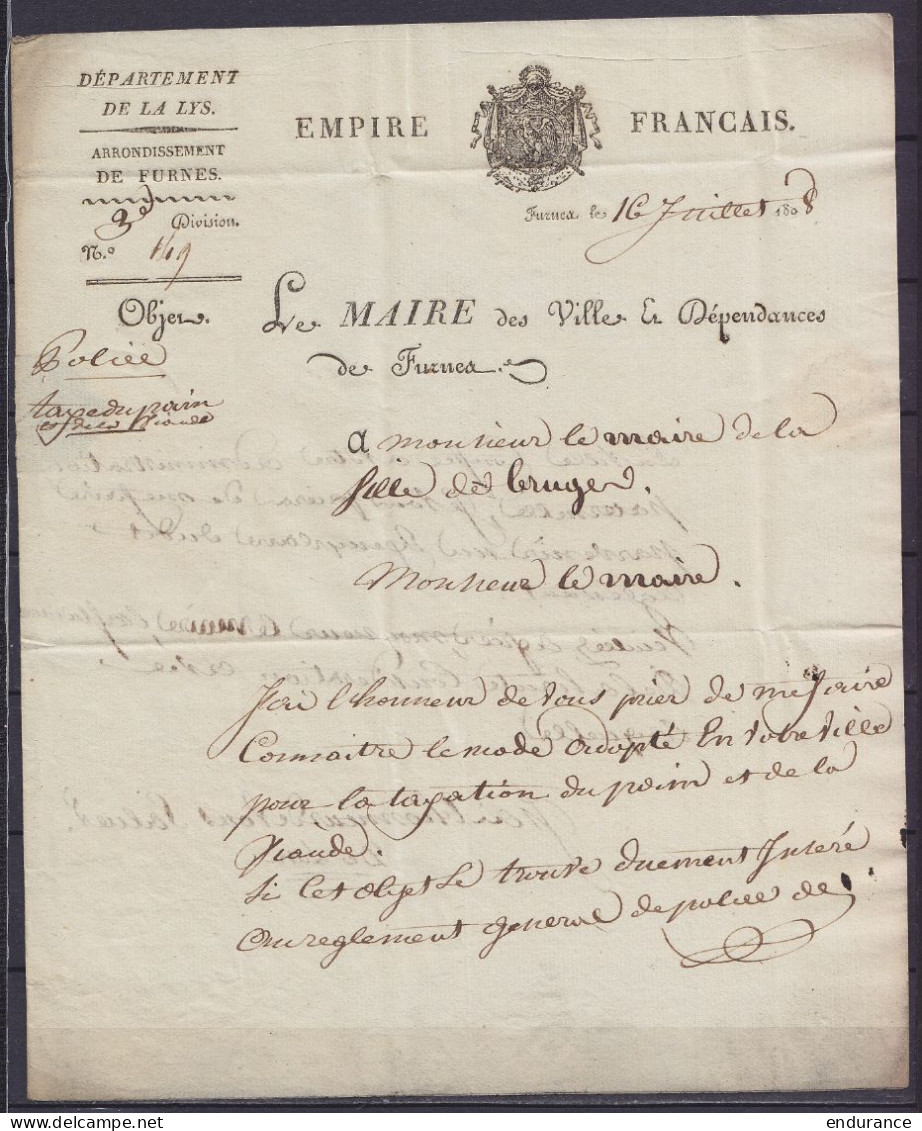 DÉPARTEMENT
DE LA LYS.
ARRONDISSEMENT
DE FURNES.
3e Division.
N.o 149
EMPIRE FRANCAIS.
Furnes le 16 Juillet 1808
Objet.
Police
taxe du pain
et de la Viande
Le MAIRE des Ville Et Dépendances
de Furnes.
a monsieur le maire de la
Ville de bruges.
Monsieur le maire.
J'ai l'honneur de Vous prier de me faire
Connaitre le mode adopté En votre Ville
pour la taxation du pain et de la
Viande.
Si Cet objet Se trouve duement Inseré
au reglement general de police de
endurance